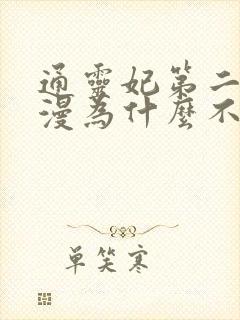 通靈妃第二
漫為什麼不
单笑寒